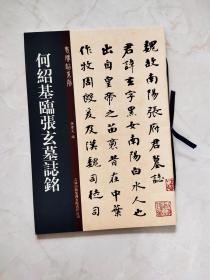 魏故南陽張府君墓誌
君諱玄字黑女南陽白水人也
出自皇帝之苗裔昔在中葉
作牧周殷爰及漢魏司徒司
何紹基臨張玄墓誌銘